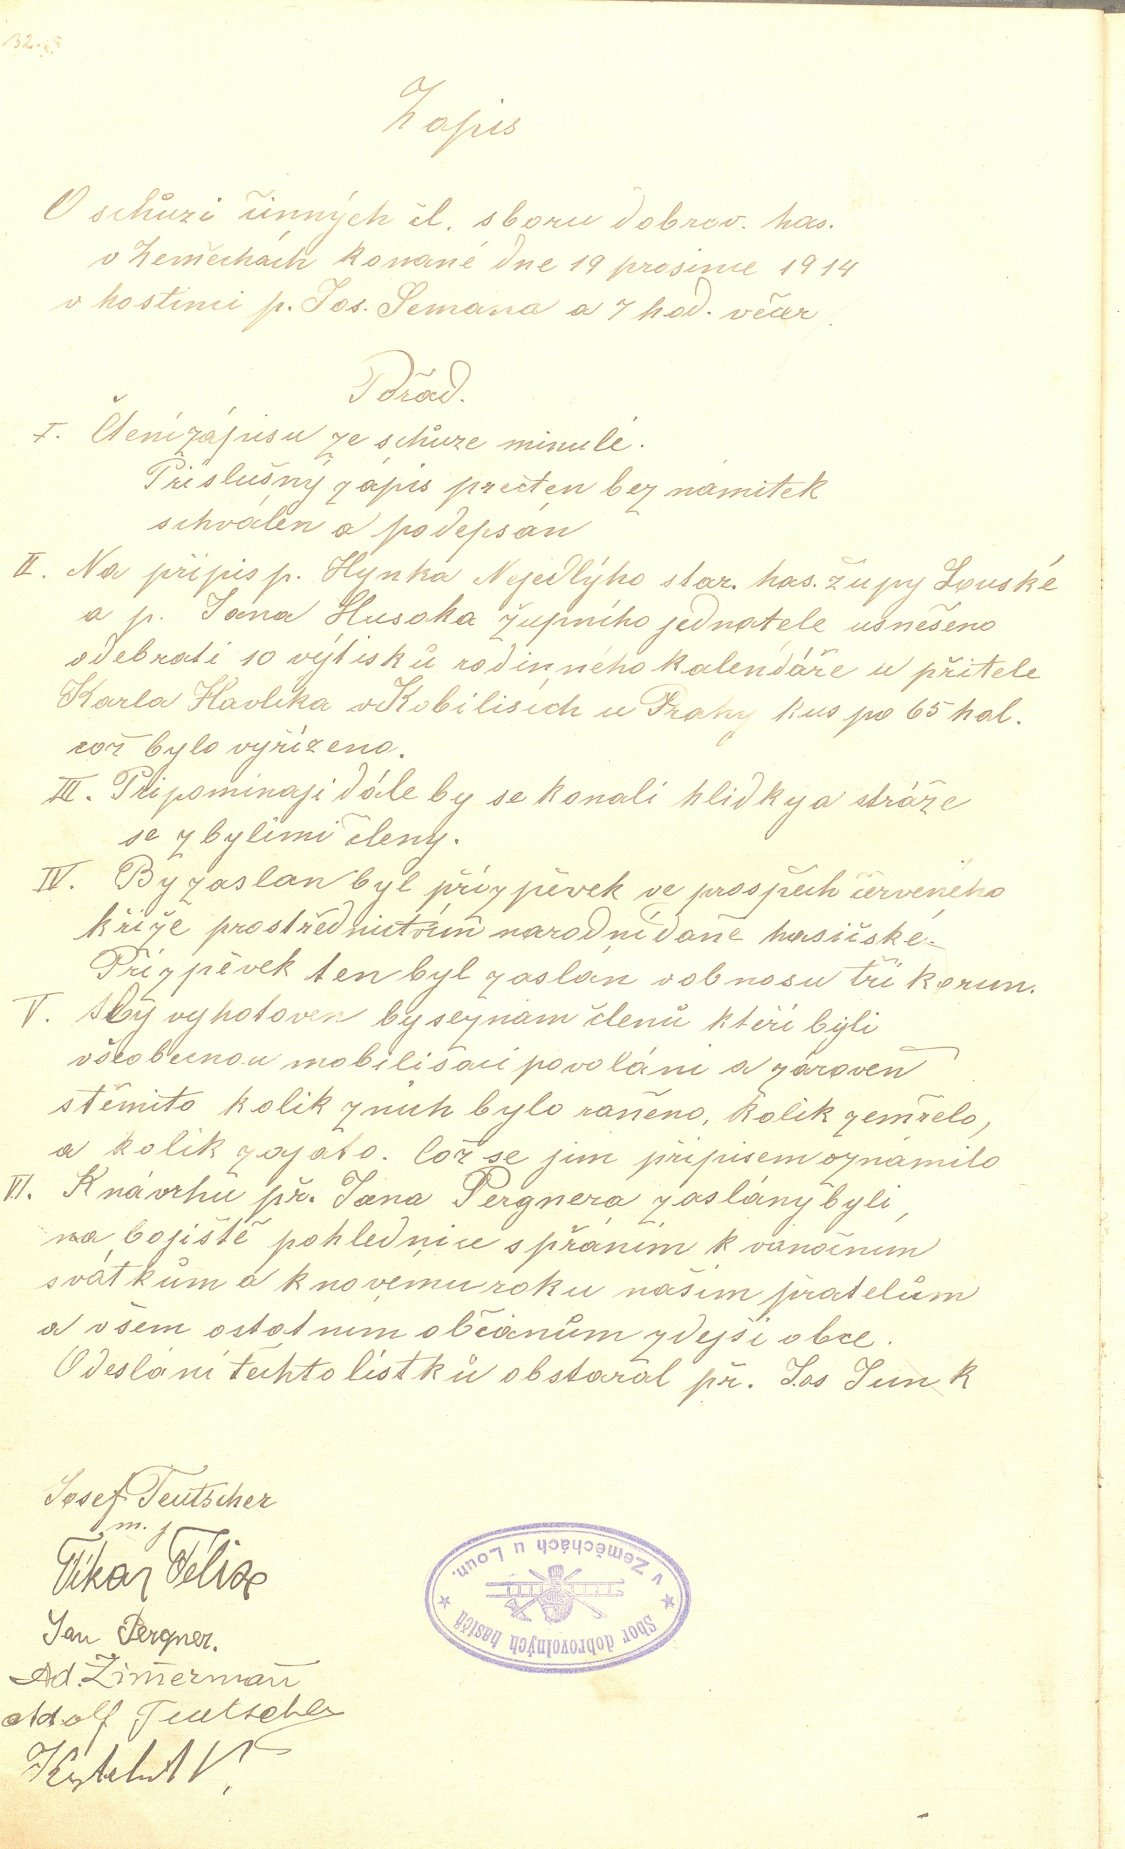 132.
Zápis
O schůzi činných čl. sboru dobrov. has.
v Zeměchách konané dne 19 prosince 1914
v hostinci p. Jos. Semana a 7 hod. večer.
Pořad.
I. Čtení zápisu ze schůze minulé.
Příslušný zápis přečten bez námitek
schválen a podepsán
II. Na přípis p. Hynka Nejedlýho star. has. župy Lounské
a p. Jana Husaka župního jednatele usnešeno
odebrati 10 výtisků rodinného kalendáře u přítele
Karla Havlíka v Kobilisích u Prahy kus po 65 hal.
což bylo vyřízeno.
III. Připomínají dále by se konali hlídky a stráže
se zbylimi členy.
IV. By zaslán byl přízpěvek ve prospěch červeného
kříže prostřednictvím narodní daně hasičské.
Přízpěvek ten byl zaslán v obnosu tří korun.
V. by vyhotoven by seznam členů kteří byli
všeobecnou mobilisací povoláni a zároveň
s těmito kolik z nich bylo raněno, kolik zemřelo,
a kolik zajato. Což se jim přípisem oznámilo
VI. K návrhu př. Jana Pergnera zaslány byli
na bojiště pohlednice s přáním k vánočním
svátkům a k novemu roku našim přatelům
a všem ostatním občanům zdejší obce.
Odeslání těchto lístků obstaral př. Jos Junk
Josef Teutscher
m. j
Tikar Felix
Jan Pergner.
Ad. Zimerman
Adolf Teutscher
Sbor dobrovolných hasičů
v Zeměchách u Loun.